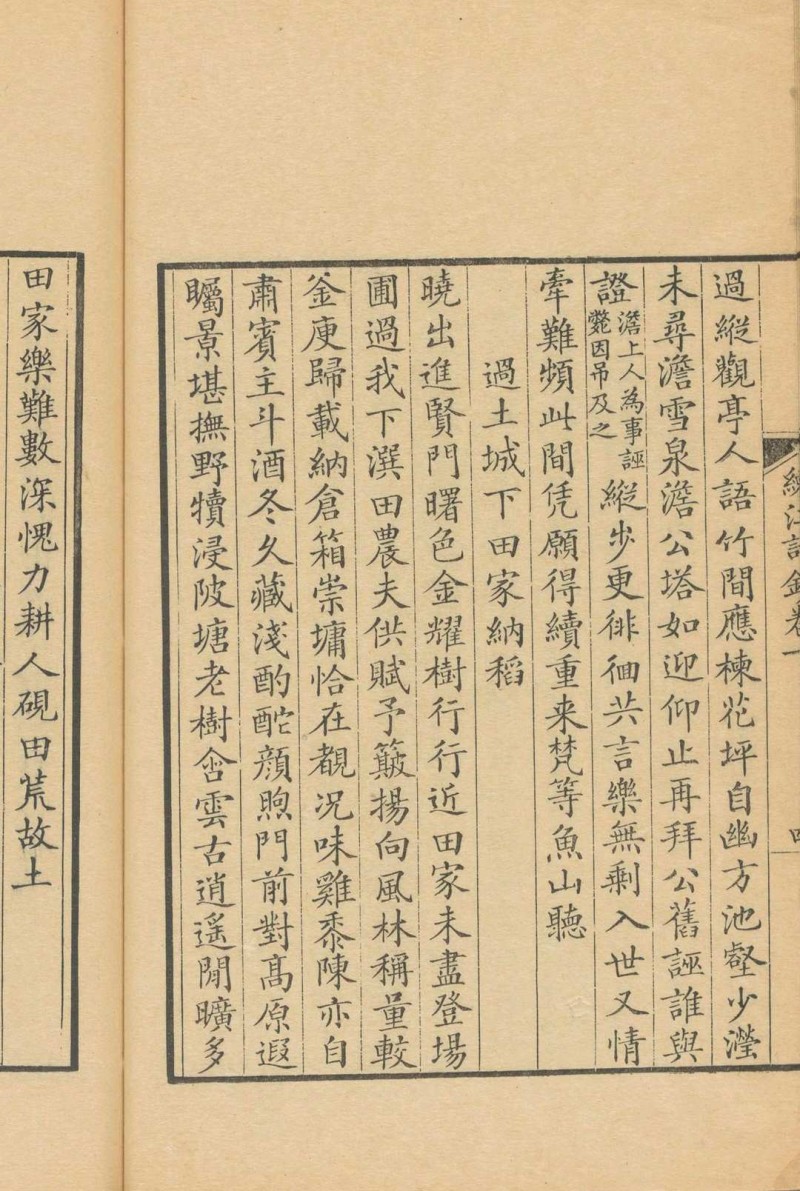 過縱觀亭人語竹間應棟花坪自幽方池壑少瀅
未尋澹雪泉澹公塔如迎仰止再拜公舊誣誰與
證澹上人為事誣斃因吊及之縱步更徘徊共言樂無剩入世又情
牽難頻此間凭願得續重来梵等魚山聽
過土城下田家納稻
曉出進賢門曙色金耀樹行行近田家未盡登場
圃過我下潠田農夫供賦予簸揚向風林稱量較
釜庾歸載納倉箱崇墉恰在覩况味雞黍陳亦自
肅賓主斗酒冬久藏淺酌酡顔煦門前對髙原遐
矚景堪撫野犢浸陂塘老樹含雲古逍遙閒曠多
田家樂難數深愧力耕人硯田荒故土